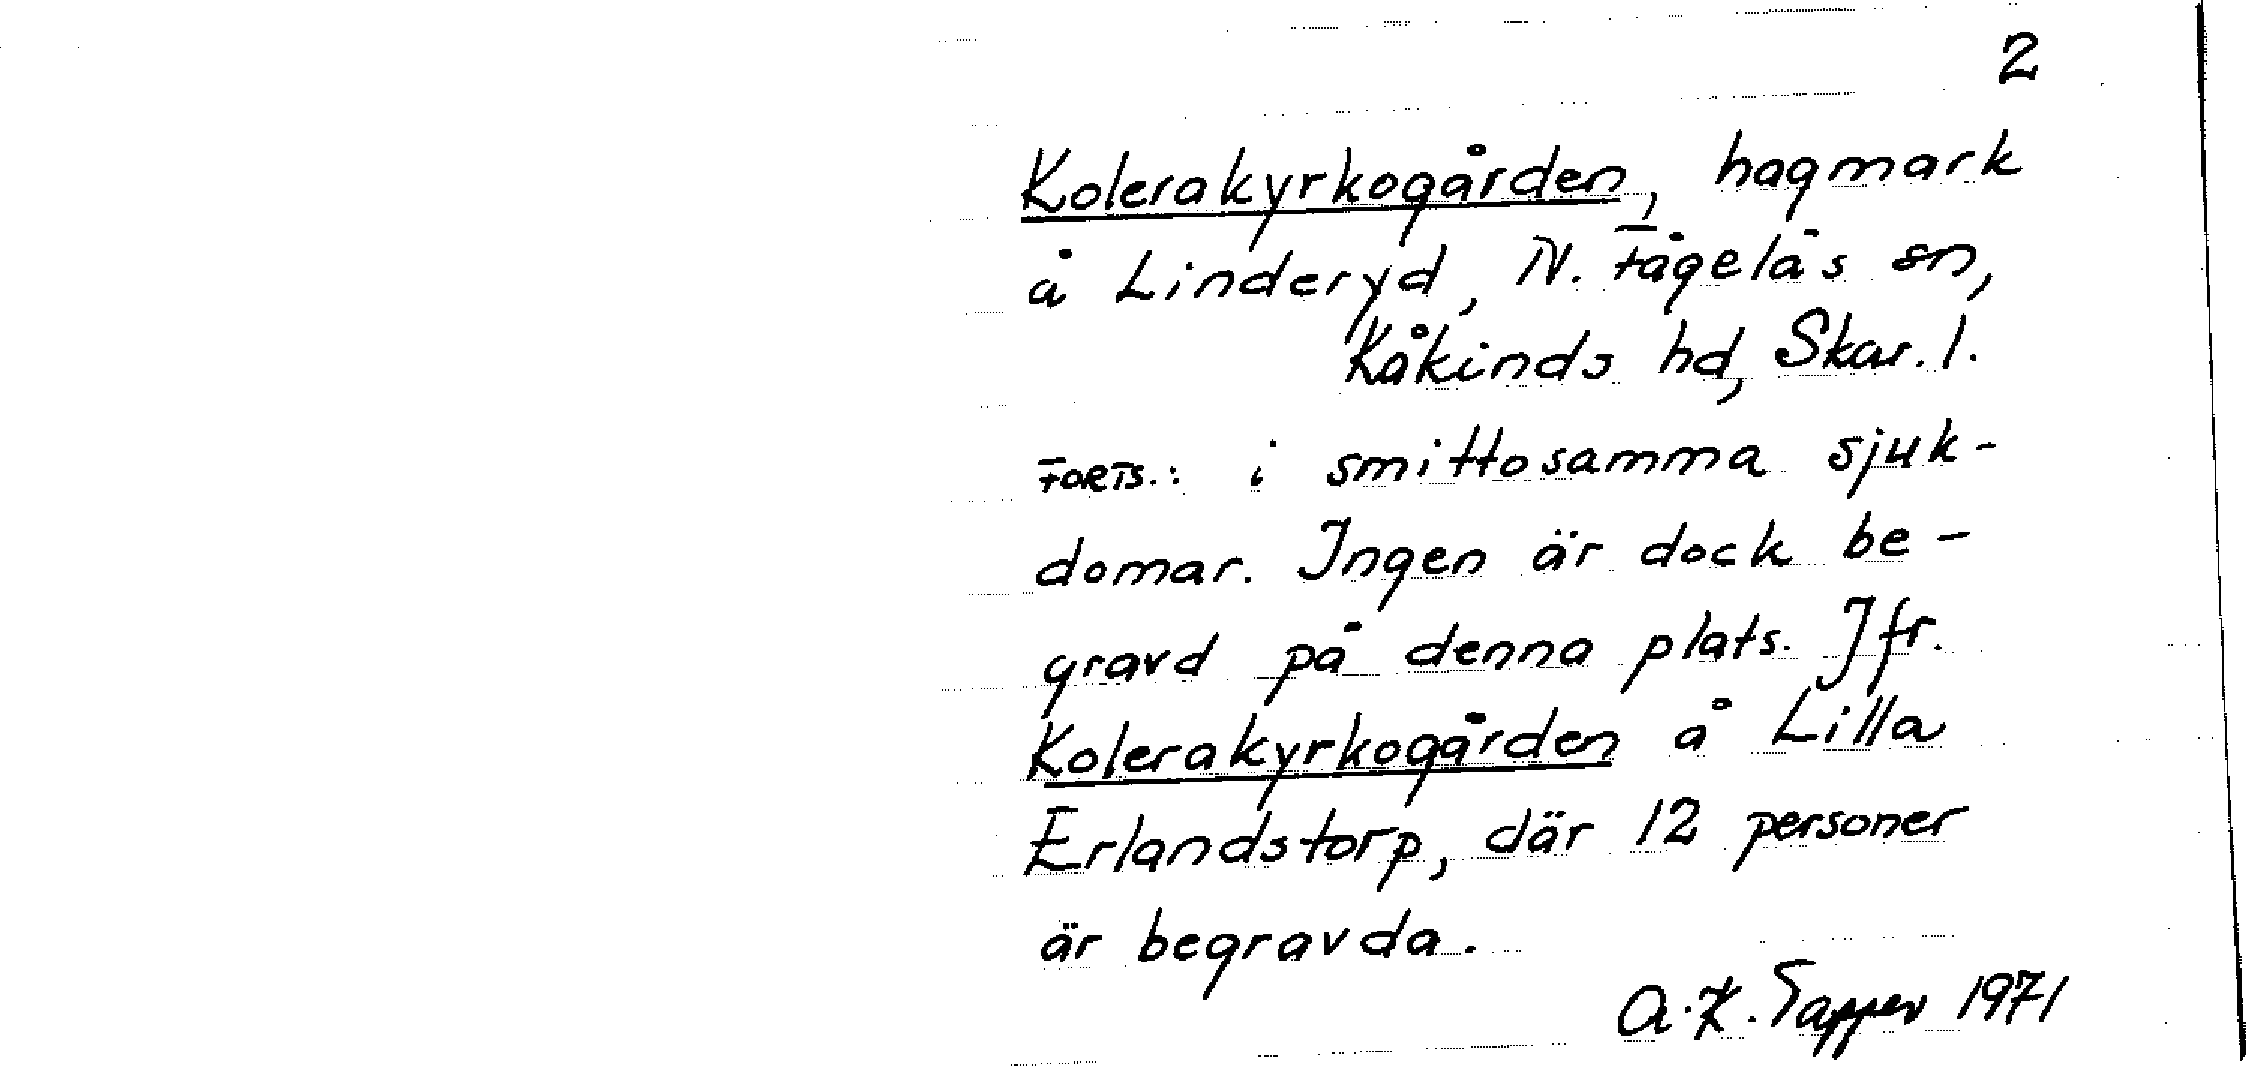 2
Kolerakyrkogården, hagmark
å Linderyd, N. Fågelås sn,
Kåkinds hd, Skar. l.
FORTS.: i smittosamma sjuk-
domar. Ingen är dock be-
gravd på denna plats. Jfr.
Kolerakyrkogården å Lilla
Erlandstorp, där 12 personer
är begravda.
A.K. Tapper 1971